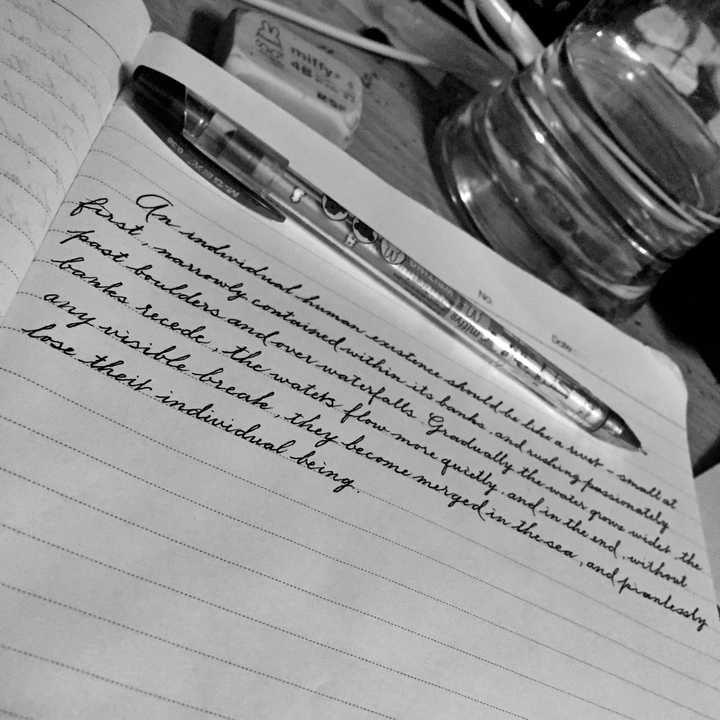 miffy
4B
MSP
No.
Date
An individual human existence should be like a river - small at
first, narrowly contained within its banks, and rushing passionately
past boulders and over waterfalls. Gradually the water grows wider, the
banks recede, the waters flow more quietly, and in the end, without
any visible break, they become merged in the sea, and pianlessly
lose their individual being.